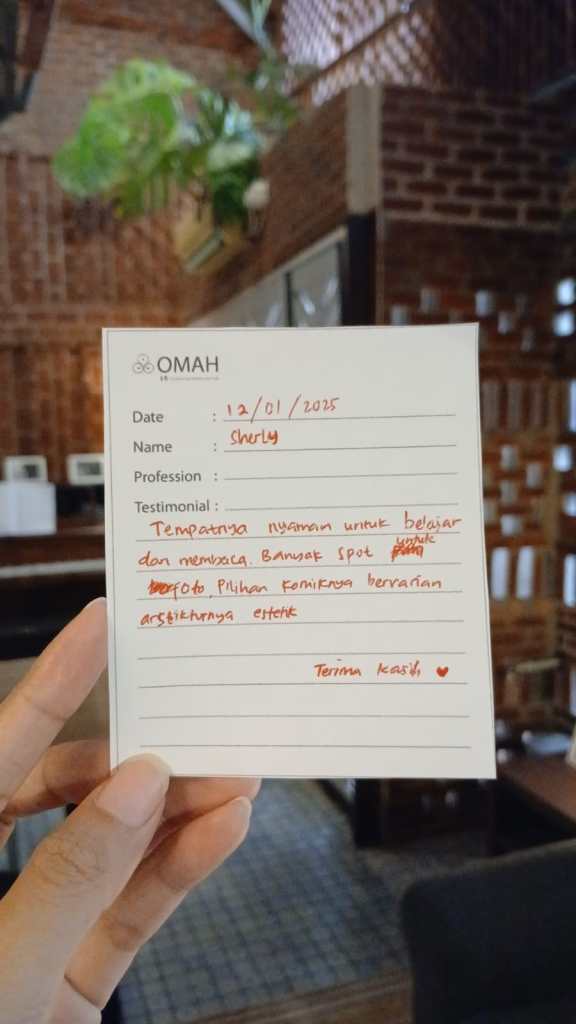 OMAH
Date : 12/01/2025
Name : Sherly
Profession :
Testimonial :
Tempatnya nyaman untuk belajar
dan membaca. Banyak spot untuk
foto. Pilihan komiknya bervarian
arsitikturnya estetik
Terima kasih ♥